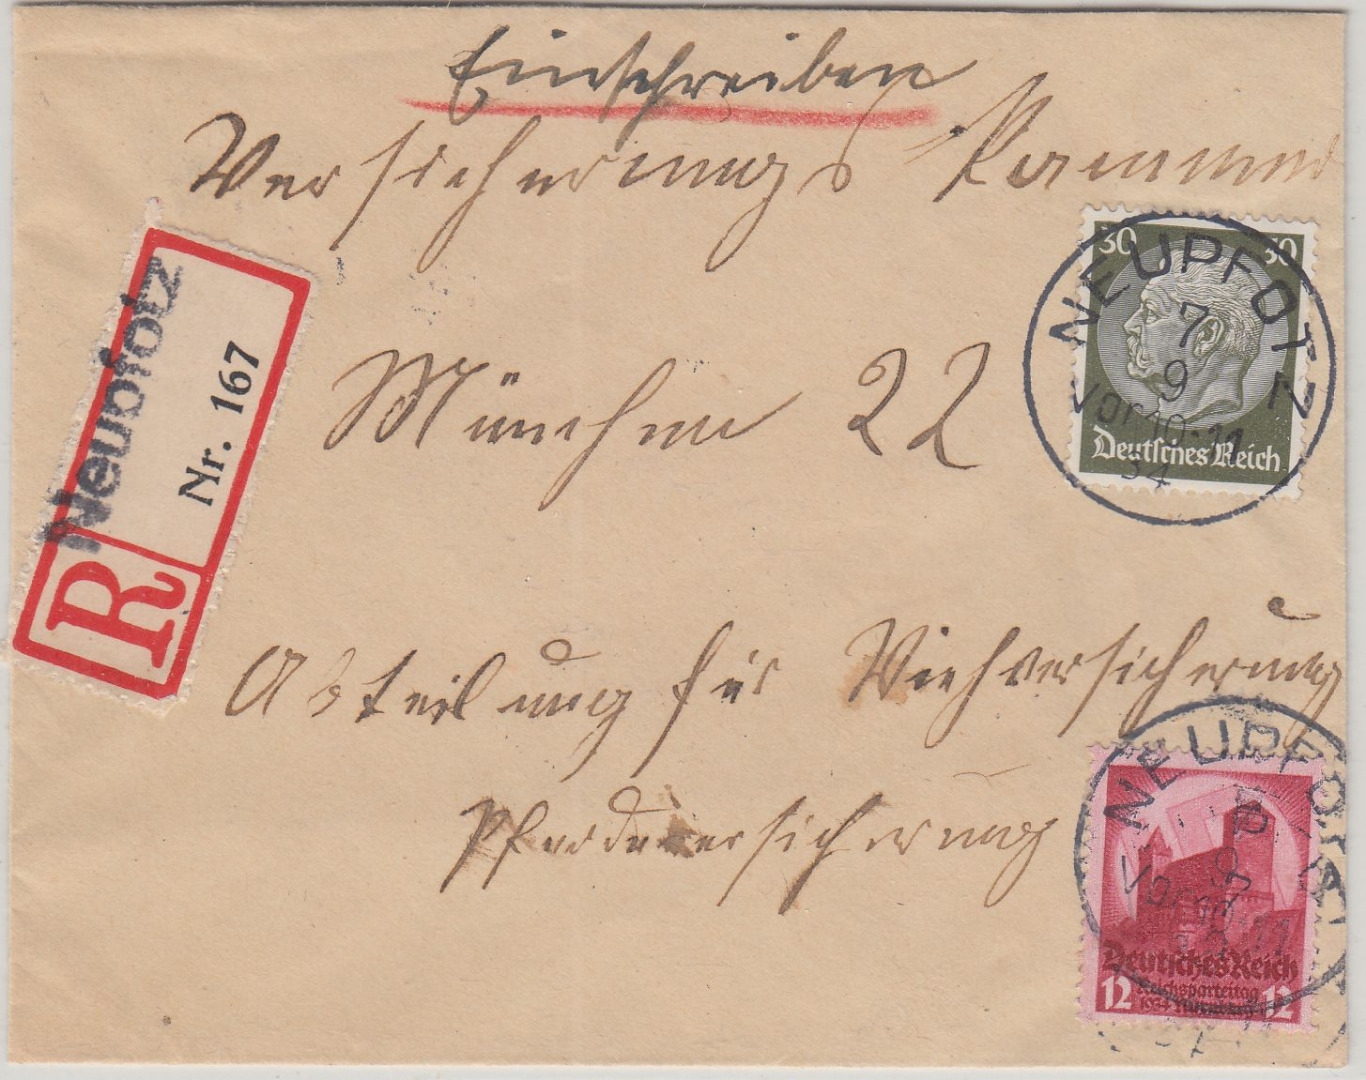 Einschreiben
Versicherungs Kammer
München 22
Abteilung für Viehversicherung
Pferdeversicherung
Neupfotz
Nr. 167
R
30 30
Deutsches Reich
NEUPFOTZ
7
9
Vor.10-11
34
NEUPFOTZ
Vorm
Deutsches Reich
Reichsparteitag
1934 Nürnberg
12 12